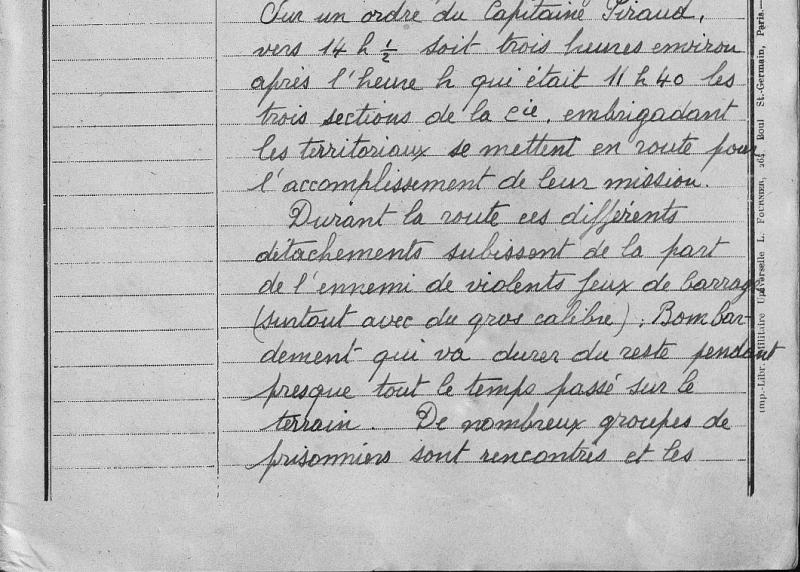 Sur un ordre du Capitaine Piraud,
vers 14 h ½ soit trois heures environ
après l'heure h qui était 11 h 40 les
trois sections de la Cie. embrigadant
les territoriaux se mettent en route pour
l'accomplissement de leur mission.
Durant la route ces différents
détachements subissent de la part
de l'ennemi de violents feux de barrage
(surtout avec du gros calibre). Bombar-
dement qui va durer du reste pendant
presque tout le temps passé sur le
terrain. De nombreux groupes de
prisonniers sont rencontrés et les
Imp.-Libr. Militaire Universelle L. FOURNIER, 264 Boul St-Germain, Paris.